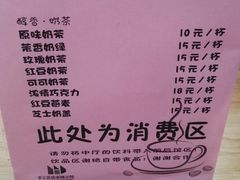 醇香·奶茶
原味奶茶 10元/杯
茉香奶绿 15元/杯
玫瑰奶茶 15元/杯
红豆奶茶 15元/杯
可可奶茶 15元/杯
浓情巧克力 18元/杯
红豆燕麦 15元/杯
芝士奶盖 15元/杯
此处为消费区
请勿将中厅的饮料带入前后馆区!
饮品区谢绝自带食品!谢谢合作